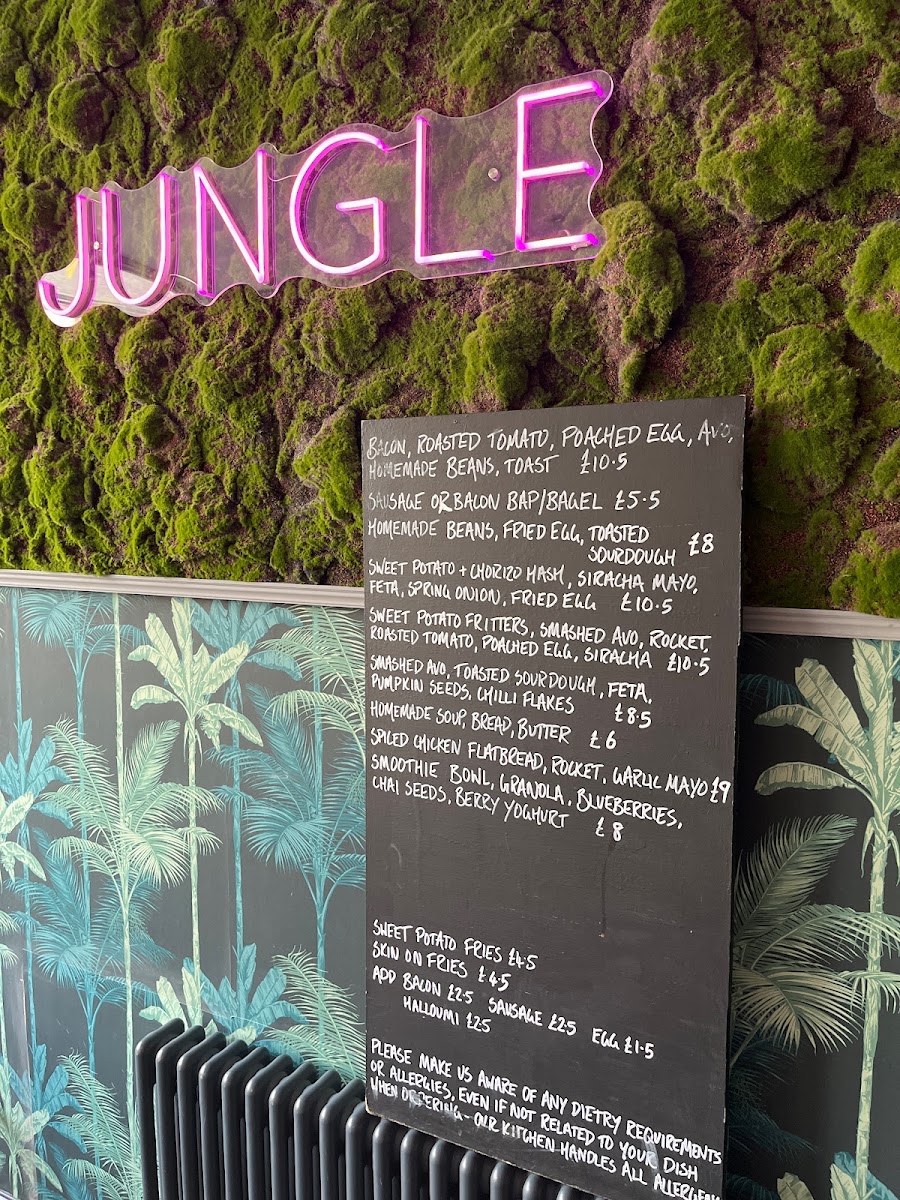 JUNGLE
BACON, ROASTED TOMATO, POACHED EGG, AVO,
HOMEMADE BEANS, TOAST £10.5
SAUSAGE OR BACON BAP/BAGEL £5.5
HOMEMADE BEANS, FRIED EGG, TOASTED
SOURDOUGH £8
SWEET POTATO + CHORIZO HASH, SIRACHA MAYO,
FETA, SPRING ONION, FRIED EGG £10.5
SWEET POTATO FRITTERS, SMASHED AVO, ROCKET,
ROASTED TOMATO, POACHED EGG, SIRACHA £10.5
SMASHED AVO, TOASTED SOURDOUGH, FETA,
PUMPKIN SEEDS, CHILLI FLAKES £8.5
HOMEMADE SOUP, BREAD, BUTTER £6
SPICED CHICKEN FLATBREAD, ROCKET, GARLIC MAYO £9
SMOOTHIE BOWL, GRANOLA, BLUEBERRIES,
CHAI SEEDS, BERRY YOGHURT £8
SWEET POTATO FRIES £4.5
SKIN ON FRIES £4.5
ADD BACON £2.5 SAUSAGE £2.5 EGG £1.5
HALLOUMI £2.5
PLEASE MAKE US AWARE OF ANY DIETRY REQUIREMENTS
OR ALLERGIES, EVEN IF NOT RELATED TO YOUR DISH
WHEN ORDERING - OUR KITCHEN HANDLES ALL ALLERGENS